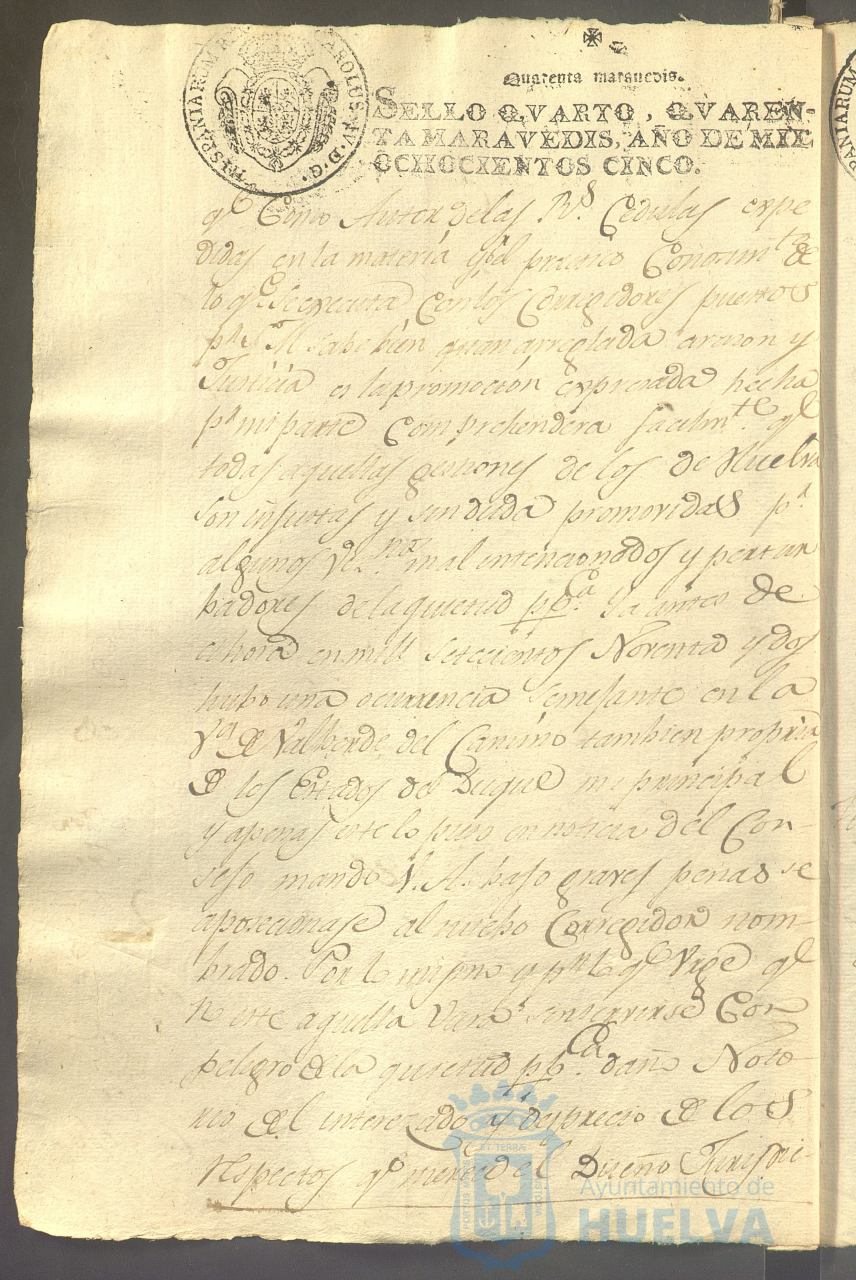 HISPANIARUM R. CAROLUS IV D. G.
Quarenta maravedis.
SELLO QVARTO, QVAREN-
TA MARAVEDIS, AÑO DE MIL
OCHOCIENTOS CINCO.
qᵉ Como Autor de las Rˢ Cedulas expe
didas en la materia y pᵉl practico Conosimᵗᵒ de
lo qᵉ se executa con los Corregedores puertos
pʳ S. M. sabe bien quan arreglada a rason y
Justicia es la promocion expresada hecha
pʳ mi parte Comprehendera facilmᵗᵉ qᵉ
todas aquellas gestiones de los de Huelva
son injustas y sin duda promovidas pʳ
algunos Veᶻⁿᵒˢ mal intencionados y pertur
badores de la quietud ppᶜᵃ. Ya antes de
ahora en mill setecientos Noventa y dos
hubo una ocurrencia semejante en la
Vᵃ de Valberde del Camino tambien propria
de los Estados del Duque mi principal
y apenas este lo puso en noticia del Con-
sejo mando V. A. bajo graves penas se
aposecionase al nuebo Corregidor nom-
brado. Por lo mismo y pʳ lo qᵉ Urge qᵉ
no este aquella Vara sin serverse Con
peligro de la quietud ppᶜᵃ. daño Noto-
rio del interezado y desprecio de los
respectos qᵉ merece el Dueño Jurisdi-
PORTUS MARIS ET TERRAE CUSTODIA
Ayuntamiento de
HUELVA